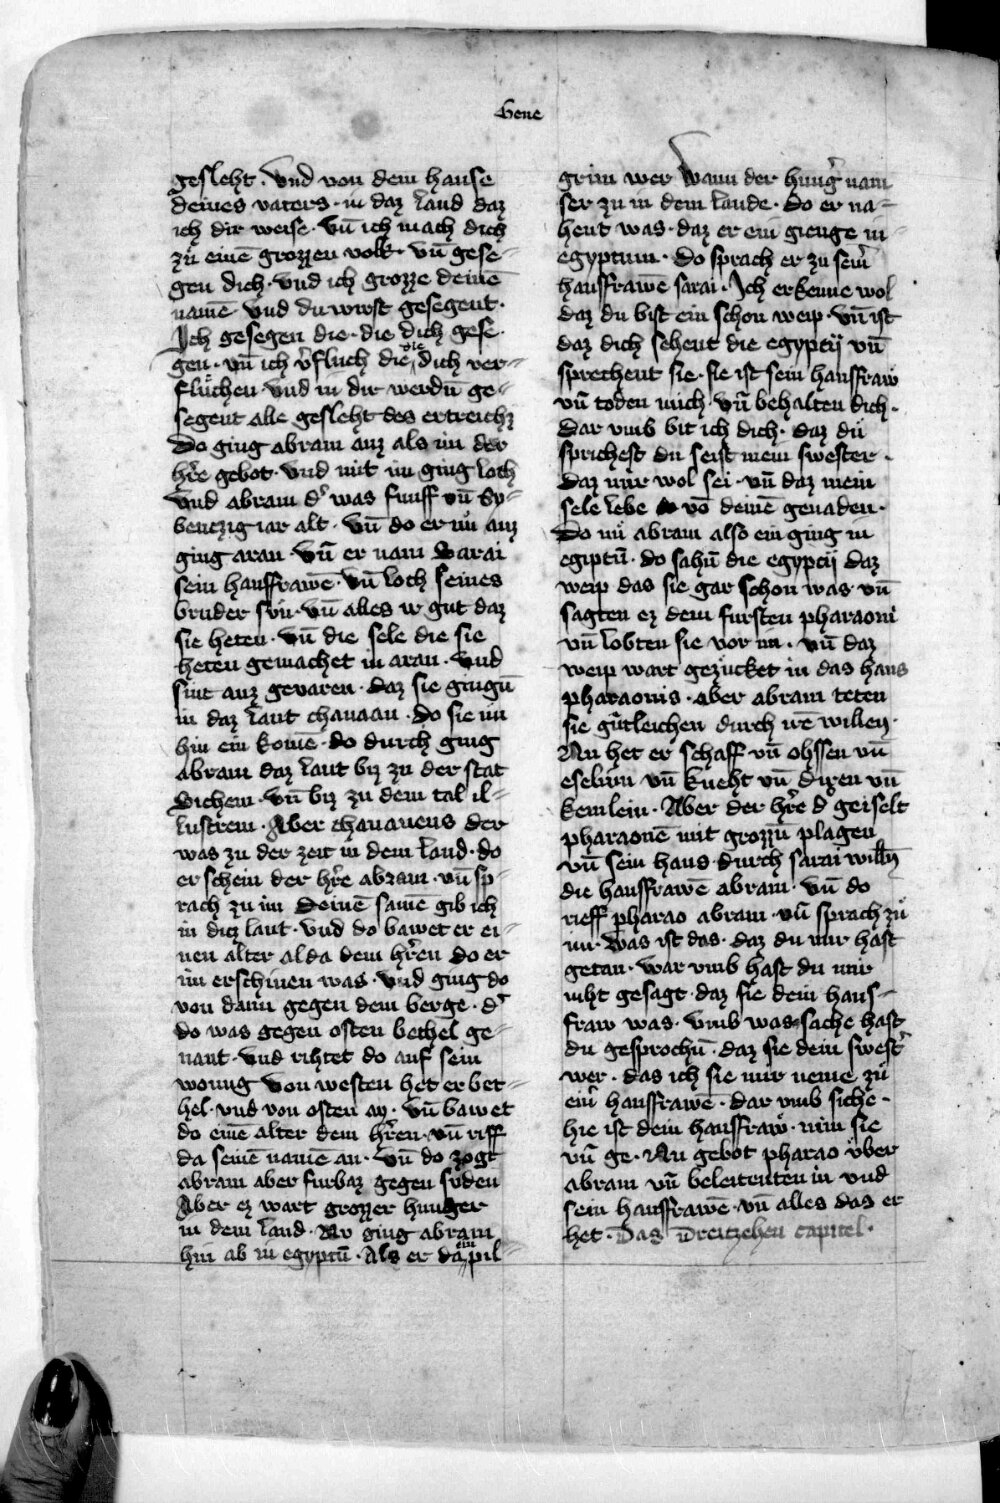 Gene
gesleht. Vnd von dem hause
deines vaters · in daz land daz
ich dir weise · vn̄ ich mach dich
zu̇ einē grozzen volk · vn̄ gese-
gen dich · vnd ich grozze deinē
namē · vnd du wirst gesegent ·
Ich gesegen die · die dich gese-
gen · vn̄ ich v̓fluch die die dich ver-
fluchen · vnd in dir werdn̄ ge-
segent alle gesleht des ertreichz
Do ging abram auz als im der
hr̄e gebot · vnd mit im ging Loth
vnd abram d̓ was funff vn̄ sy-
benczig iar alt · vn̄ do er nu̇ auz
ging aran · vn̄ er nam Sarai
sein hausfrawē · vn̄ loth seines
bruder sun · vn̄ alles ir gut daz
sie heten · vn̄ die sele die sie
heten gemachet in aran · vnd
sint auz gevaren · daz sie gingn̄
in daz lant chanaan · do sie nu
hin ein komē · do durch ging
abram daz lant biz zu der stat
Sichem · vn̄ biz zu dem tal il-
lustrem · Aber chananeus der
was zu der zeit in dem land · do
erschein der hr̄e abram · vn̄ sp-
rach zu im Deinē samē gib ich
in dicz lant · vnd do bawet er ei-
nen alter alda dem hr̄en do er
im erschinen was · vnd ging do
von dann gegen dem berge · d̓
do was gegen osten bethel ge-
nant · vnd rihtet do auf sein
wonung von westen het er bet-
hel · vnd von osten ay · vn̄ bawet
do einē alter dem hr̄en · vn̄ riff
da seinē namē an · vn̄ do zogt
abram aber furbaz gegen suden
Aber ez wart grozzer hunger
in dem land · Nv ging abram
hin ab in egyptū · Als er da im pil-
grim wer wann der hung̓ nam
ser zu in dem lande · do er na-
hent was · daz er ein gienge in-
egyptum · do sprach er zu sein̓
hausfrawē sarai · Ich erkenne wol
daz du bist ein schon weip · vn̄ ist
daz dich sehent die egyptij vn̄
sprechent sie · sie ist sein hausfraw
vn̄ toden mich vn̄ behalten dich ·
dar vmb bit ich dich · daz du̇
sprichest du seist mein swester ·
daz mir wol sei · vn̄ daz mein
sele lebe vō deinē genaden ·
Do nu̇ abram also ein ging in
egiptū · do sahn̄ die egyptij daz
weip das sie gar schon was vn̄
sagten ez dem fursten pharaoni
vn̄ lobten sie vor im · vn̄ daz
weip wart gezucket in das haus
pharaonis · aber abram teten
sie gu̇tleichen durch irē willen ·
Nu het er schaff vn̄ ohssen vn̄
eselinn vn̄ kneht vn̄ dirnen vn̄
kemlein · Aber der hr̄e d geiselt
pharaonē mit grozzn̄ plagen
vn̄ sein haus · durch sarai willn̄
die hausfrawē abram · vn̄ do
rieff pharao abram · vn̄ sprach zu̇
im · was ist das · daz du mir hast
getan · war vmb hast du mir
niht gesagt · daz sie dein haus-
fraw was · vmb was sache hast
du gesprochn̄ · daz sie dein swest̓
wer · das ich sie mir neme zu̇
ein̓ hausfrawē · dar vmb sihe ·
hie ist dein hausfraw · nim sie
vn̄ ge · Nu gebot pharao v̇ber
abram vn̄ beleitenten in vnd
sein hausfrawē · vn̄ alles das er
het · Das Dreitzehen capitel ·